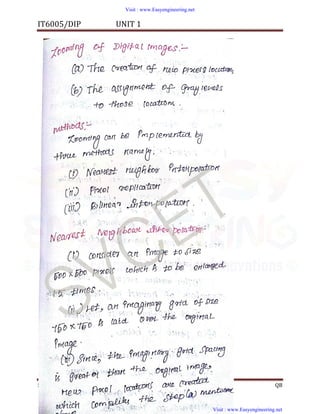 Visit : www.Easyengineering.net
IT6005/DIP UNIT 1
Zooming of Digital Images:-
(a) The creation of new pixels location,
(b) The assignment of gray levels
to those location.
methods:-
Zooming can be Implemented by
three methods namely.
(i) Nearest neighbor Interpolation
(ii) Pixel replication
(iii) Bilinear Interpolation.
Nearest Neighbour Interpolation:-
(i) consider an image of size
500 x 500 pixels which is to be enlarged
1.5 times.
(ii) Let, an imaginary grid of size
750 x 750 is laid over the original
Image.
Since, the imaginary grid spacing
is greater than the original image,
New pixel locations are created
which the step (a) mentioned
QB
SVCET
Visit : www.Easyengineering.net